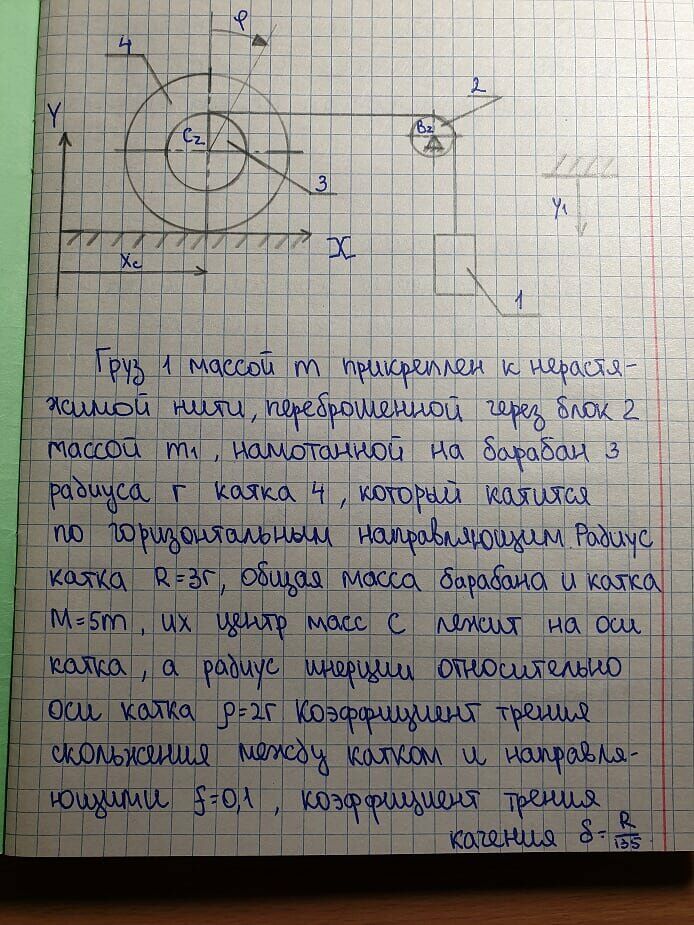 φ
4
2
Y
C₂
B₂
3
y₁
X
Xc
1
Груз 1 массой m прикреплен к нерастя-
жимой нити, переброшенной через блок 2
массой m₁, намотанной на барабан 3
радиуса r катка 4, который катится
по горизонтальным направляющим. Радиус
катка R=3r, общая масса барабана и катка
M=5m, их центр масс C лежит на оси
катка, а радиус инерции относительно
оси катка ρ=2r Коэффициент трения
скольжения между катком и направля-
ющими f=0,1, коэффициент трения
качения δ=R/135